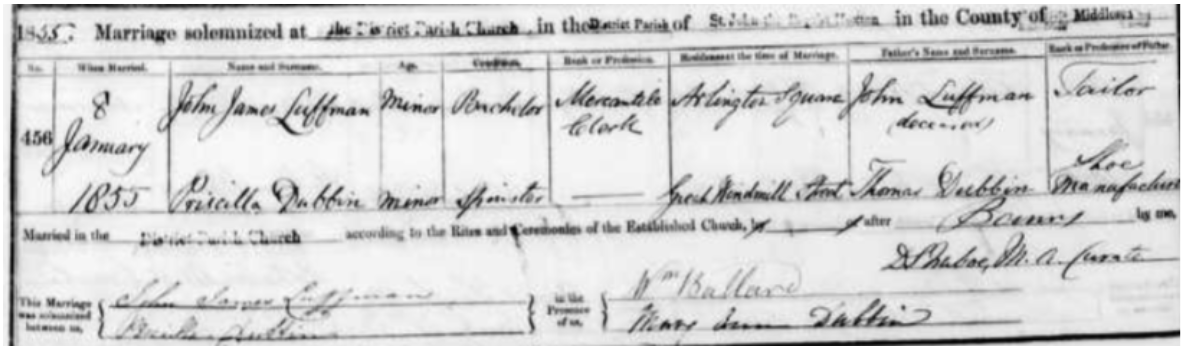 1855. Marriage solemnized at the District Parish Church in the District Parish of St. John the Baptist Hoxton in the County of Middlesex
No. When Married. Name and Surname. Age. Condition. Rank or Profession. Residence at the time of Marriage. Father's Name and Surname. Rank or Profession of Father.
456 8 January 1855
John James Luffman minor Bachelor Mercantile Clerk Arlington Square John Luffman (deceased) Tailor
Priscilla Dubbin minor Spinster Great Windmill Street Thomas Dubbin Shoe Manufacturer
Married in the District Parish Church according to the Rites and Ceremonies of the Established Church, by after Banns by me,
M.A. Curate
This Marriage was solemnized between us, { John James Luffman
Priscilla Dubbin } in the Presence of us, { Wm Ballard
Mary Ann Dubbin }